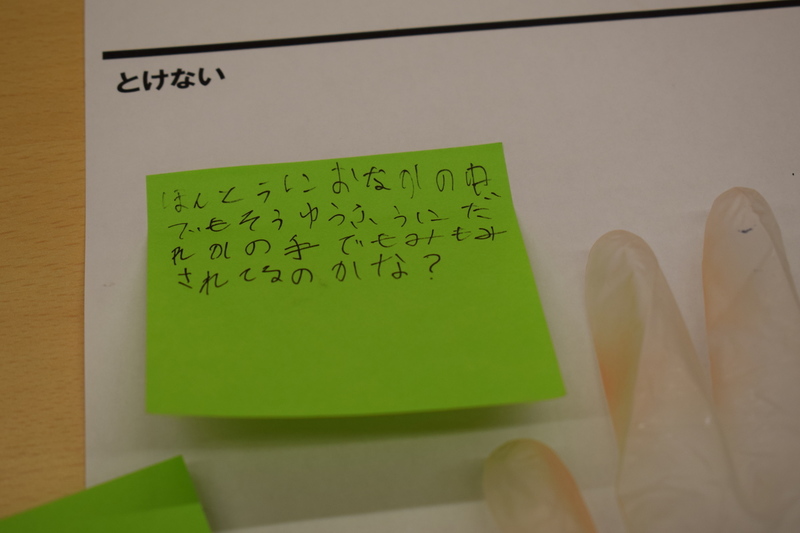 とけない
ほんとうにおなかの中、
でもそうゆうふうにだ
れかの手でもみもみ
されてるのかな?